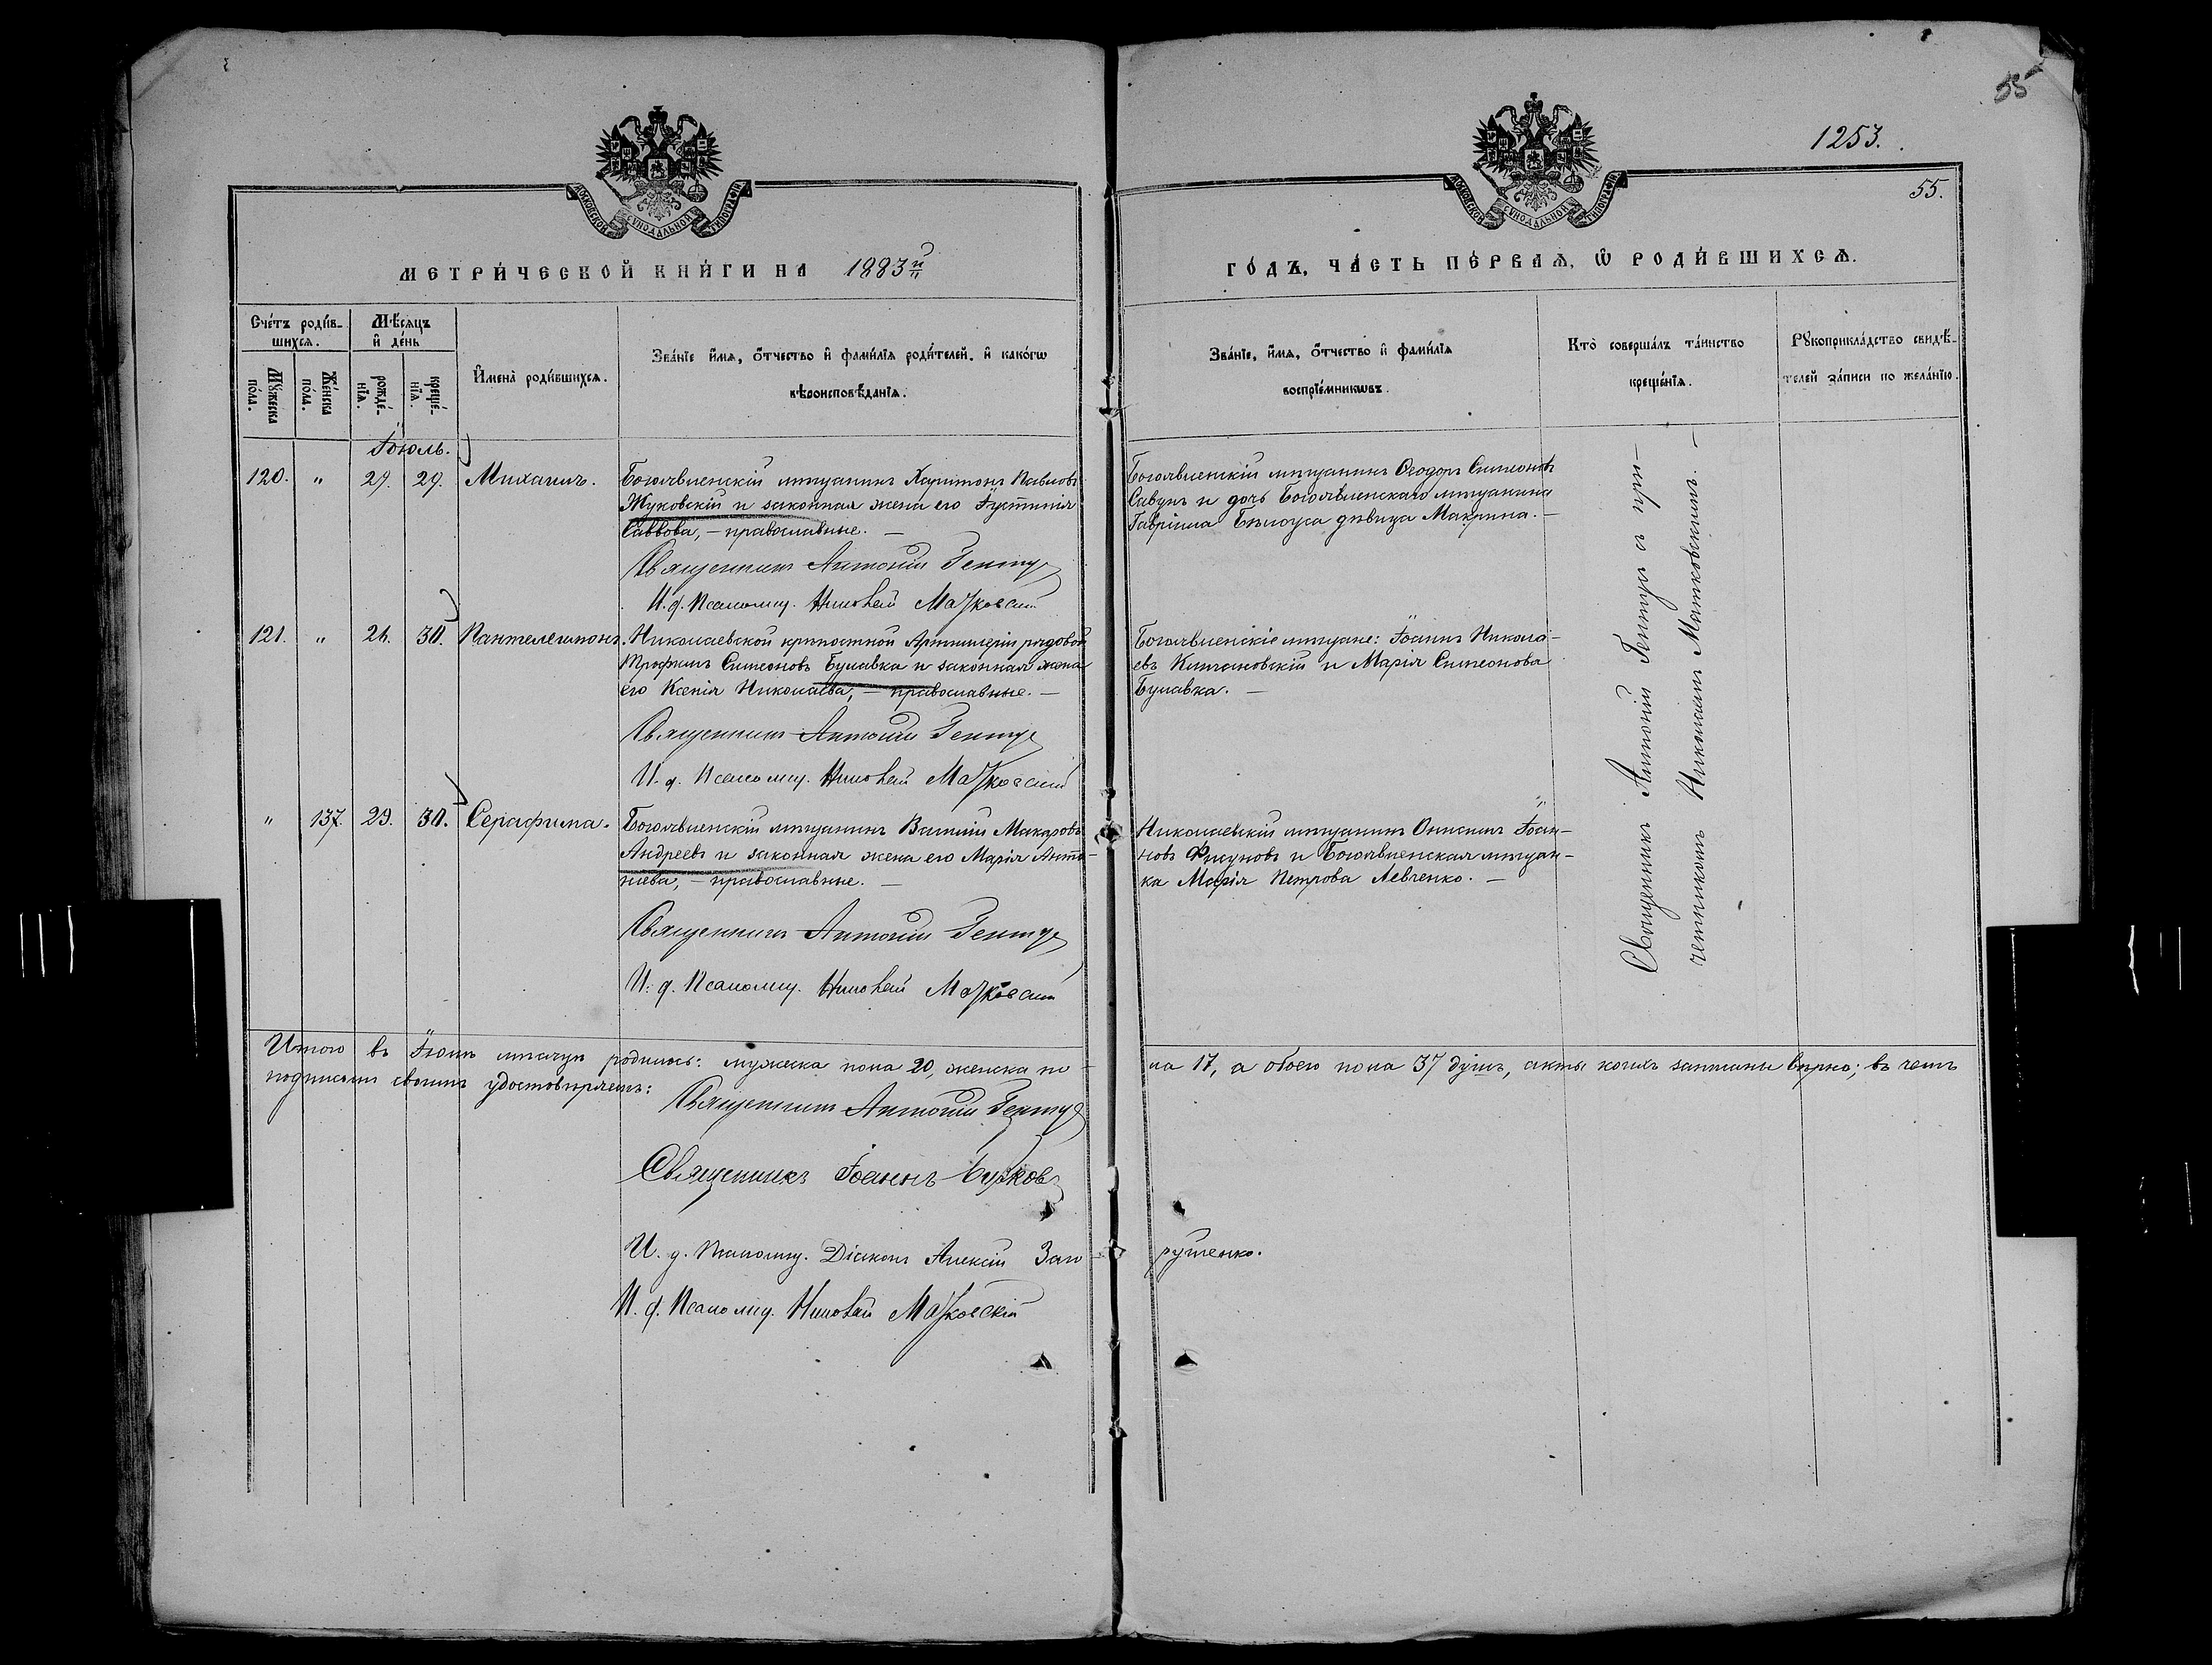 55
1253.
55.
МОСКОВСКОЙ СѴНОДАЛЬНОЙ ТИПОГРАФІИ
МОСКОВСКОЙ СѴНОДАЛЬНОЙ ТИПОГРАФІИ
МЕТРИ́ЧЕСКОЙ КНИ́ГИ НА 1883й
ГО́ДЪ, ЧА́СТЬ ПЕ́РВАѦ, Ѡ РОДИ́ВШИХСѦ.
Сче́тъ роди́в-
шихсѧ.
Мꙋ́жеска по́ла.
Же́нска по́ла.
Мѣ́сѧцъ
и҆ де́нь
рожде́-нїѧ.
креще́-нїѧ.
И҆мена̀ роди́вшихсѧ.
Зва́нїе и҆́мѧ, ѻ҆́тчество и҆ фами́лїѧ роди́телей, и҆ како́гѡ
вѣроисповѣ́данїѧ.
Зва́нїе, и҆́мѧ, ѻ҆́тчество и҆ фами́лїѧ
воспрїе́мникѡвъ.
Кто̀ соверша́лъ та́инство
креще́нїѧ.
Рꙋкоприкла́дство свидѣ́-
телей за́писи по жела́нїю.
Іюль.
120. " 29. 29. Михаилъ.
Богоявленскій мѣщанинъ Харитонъ Павловъ
Жуковскій и законная жена его Іустинія
Саввова, – православные. –
Священникъ Антоній Гентуг
И. д. Псаломщ. Николай Матковскій
Богоявленскій мѣщанинъ Ѳеодоръ Симеоновъ
Савунъ и дочь Богоявленскаго мѣщанина
Гавріила Бѣлоуса дѣвица Макрина. –
121. " 26. 30. Пантелеимонъ.
Николаевской крѣпостной Артиллеріи рядовой
Трофимъ Симеоновъ Булавка и законная жена
его Ксенія Николаева, – православные. –
Священникъ Антоній
И. д. Псаломщ. Николай Матковскій
Богоявленскіе мѣщане: Іоаннъ Никола-
евъ и Марія Симеонова
Булавка. –
" 137. 29. 30. Серафима.
Богоявленскій мѣщанинъ Василій Макаровъ
Андреевъ и законная жена его Марія Анто-
ніева, – православные. –
Священникъ Антоній
И. д. Псаломщ. Николай Матковскій
Николаевскій мѣщанинъ Онисимъ Іоан-
новъ Фисуновъ и Богоявленская мѣщан-
ка Марія Петрова Левченко. –
Священникъ Антоній съ при-
четникомъ Николаемъ Матковскимъ. –
Итого въ Іюлѣ мѣсяцѣ родилось: мужеска пола 20, женска по-
ла 17, а обоего пола 37 душъ, акты коихъ записаны вѣрно; въ чемъ
подписомъ своимъ удостовѣряемъ:
Священникъ Антоній
Священникъ Іоаннъ
И. д. Псаломщ. Діаконъ Алексій Зап-
рутенко.
И. д. Псаломщ. Николай Матковскій